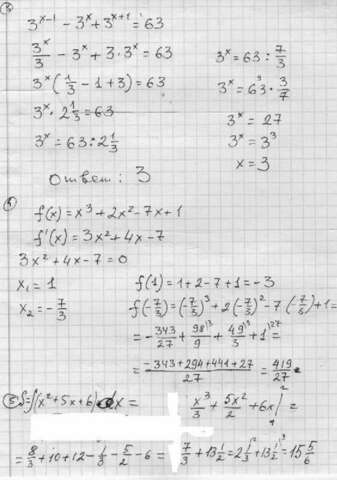 ③
3^(x-1) - 3^x + 3^(x+1) = 63
3^x/3 - 3^x + 3·3^x = 63
3^x(1/3 - 1 + 3) = 63
3^x · 2 1/3 = 63
3^x = 63 : 2 1/3
3^x = 63 : 7/3
3^x = 63 · 3/7
3^x = 27
3^x = 3^3
x = 3
Ответ: 3
④
f(x) = x³ + 2x² - 7x + 1
f'(x) = 3x² + 4x - 7
3x² + 4x - 7 = 0
x₁ = 1
x₂ = -7/3
f(1) = 1 + 2 - 7 + 1 = -3
f(-7/3) = (-7/3)³ + 2(-7/3)² - 7(-7/3) + 1 =
= -343/27 + 98/9 + 49/3 + 1 =
= (-343 + 294 + 441 + 27)/27 = 419/27
⑤ S = ∫(x² + 5x + 6)dx =
x³/3 + 5x²/2 + 6x | =
= 8/3 + 10 + 12 - 1/3 - 5/2 - 6 = 7/3 + 13 1/2 = 2 1/3 + 13 1/2 = 15 5/6